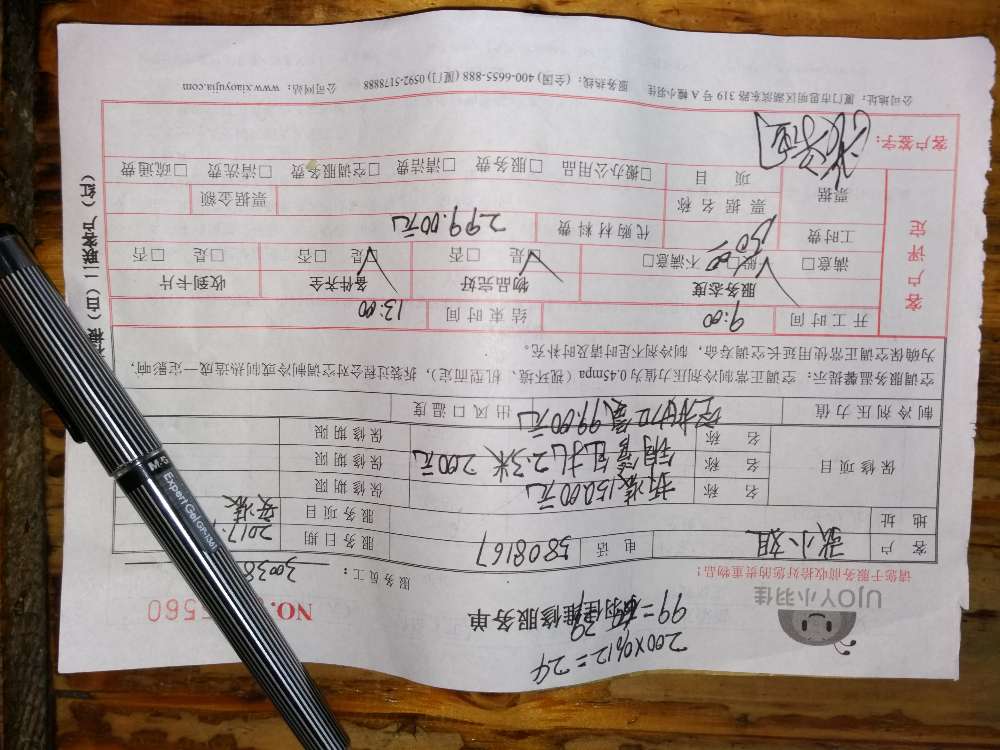 200×0.12=24
99=
UJOY小羽佳
小羽佳维修服务单
NO. 5560
请您于服务前收拾好您的贵重物品!
服务员工: 30038
客户 张小姐 电话 5808167 服务日期 2017.
地址 服务项目 安装
保修项目 名称 拆装150.00元 保修期限
名称 铜管包扎2.3米 200元 保修期限
名称 保修期限
制冷剂压力值 空调加氟99.00元 出风口温度
空调服务温馨提示: 空调正常制冷剂压力值为0.45mpa (视环境、机型而定), 拆装过程会对空调制冷或制热造成一定影响,
为确保空调正常使用延长空调寿命, 制冷剂不足时请及时补充。
开工时间 9:00 结束时间 13:00
客户评定
服务态度 物品完好 备件齐全 收到卡片
满意□ 一般□ 不满意□ 是□ 否□ 是□ 否□ 是□ 否□
工时费 150 代购材料费 299.00元
票据 票据名称 票据金额
项目 □搬办公用品 □服务费 □清洁费 □空调服务费 □清洗费 □疏通费
客户签字:
公司地址: 厦门市思明区湖滨东路319号A幢小羽佳 服务热线: (全国) 400-6655-888 (厦门) 0592-5178888 公司网站: www.xiaoyujia.com
根(白)二联客户(红)
M&G Expert Gel GP-1361